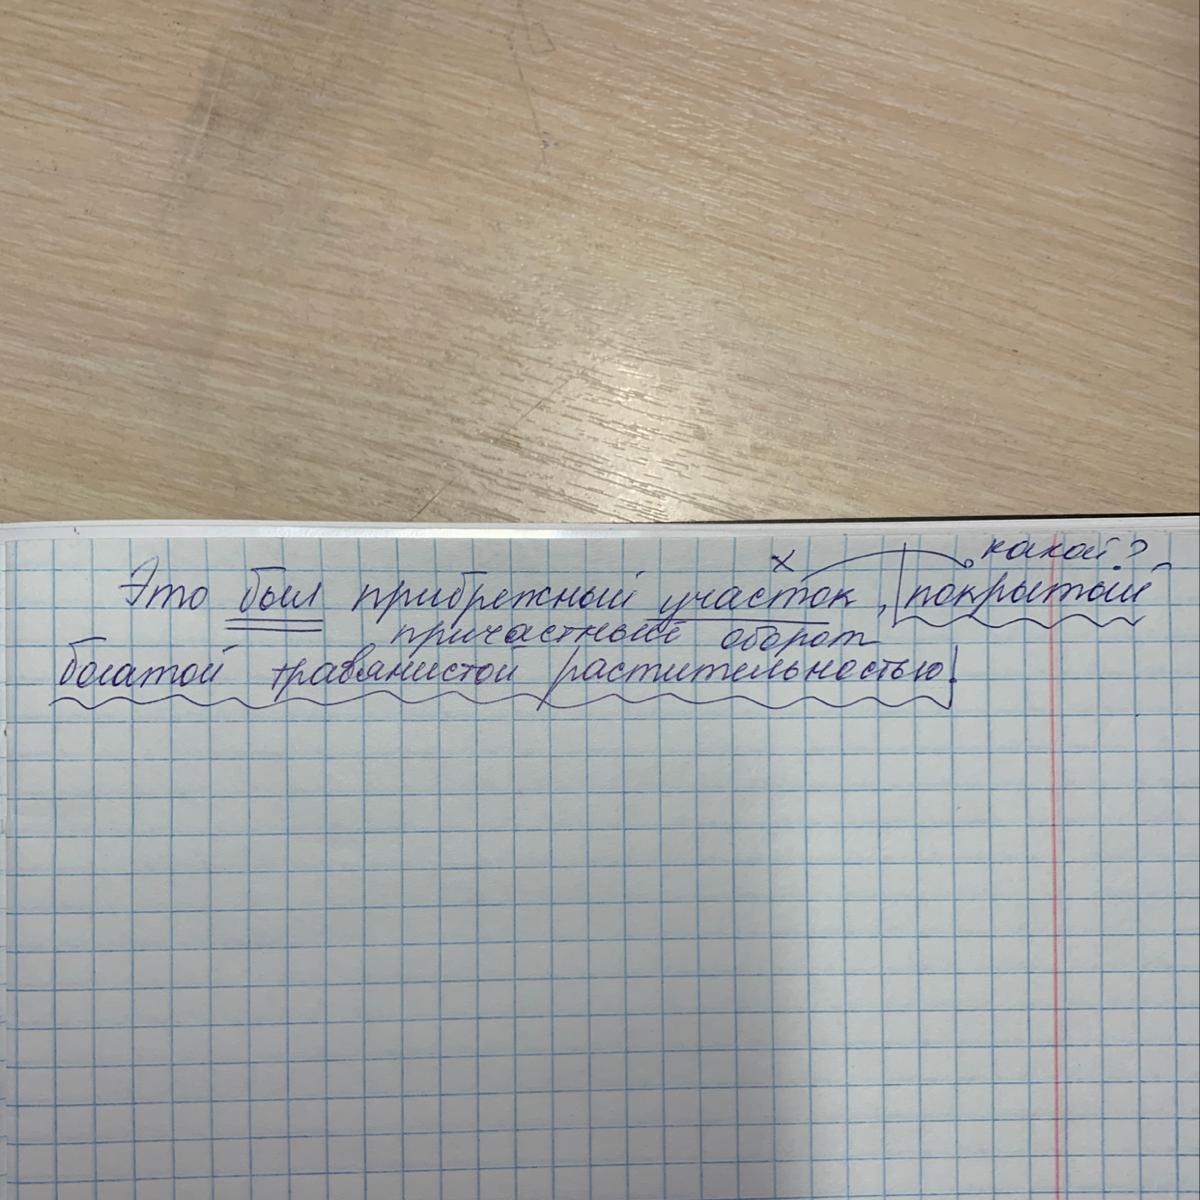 х какой?
Это был прибрежный участок, покрытый
причастный оборот
богатой травянистой растительностью.